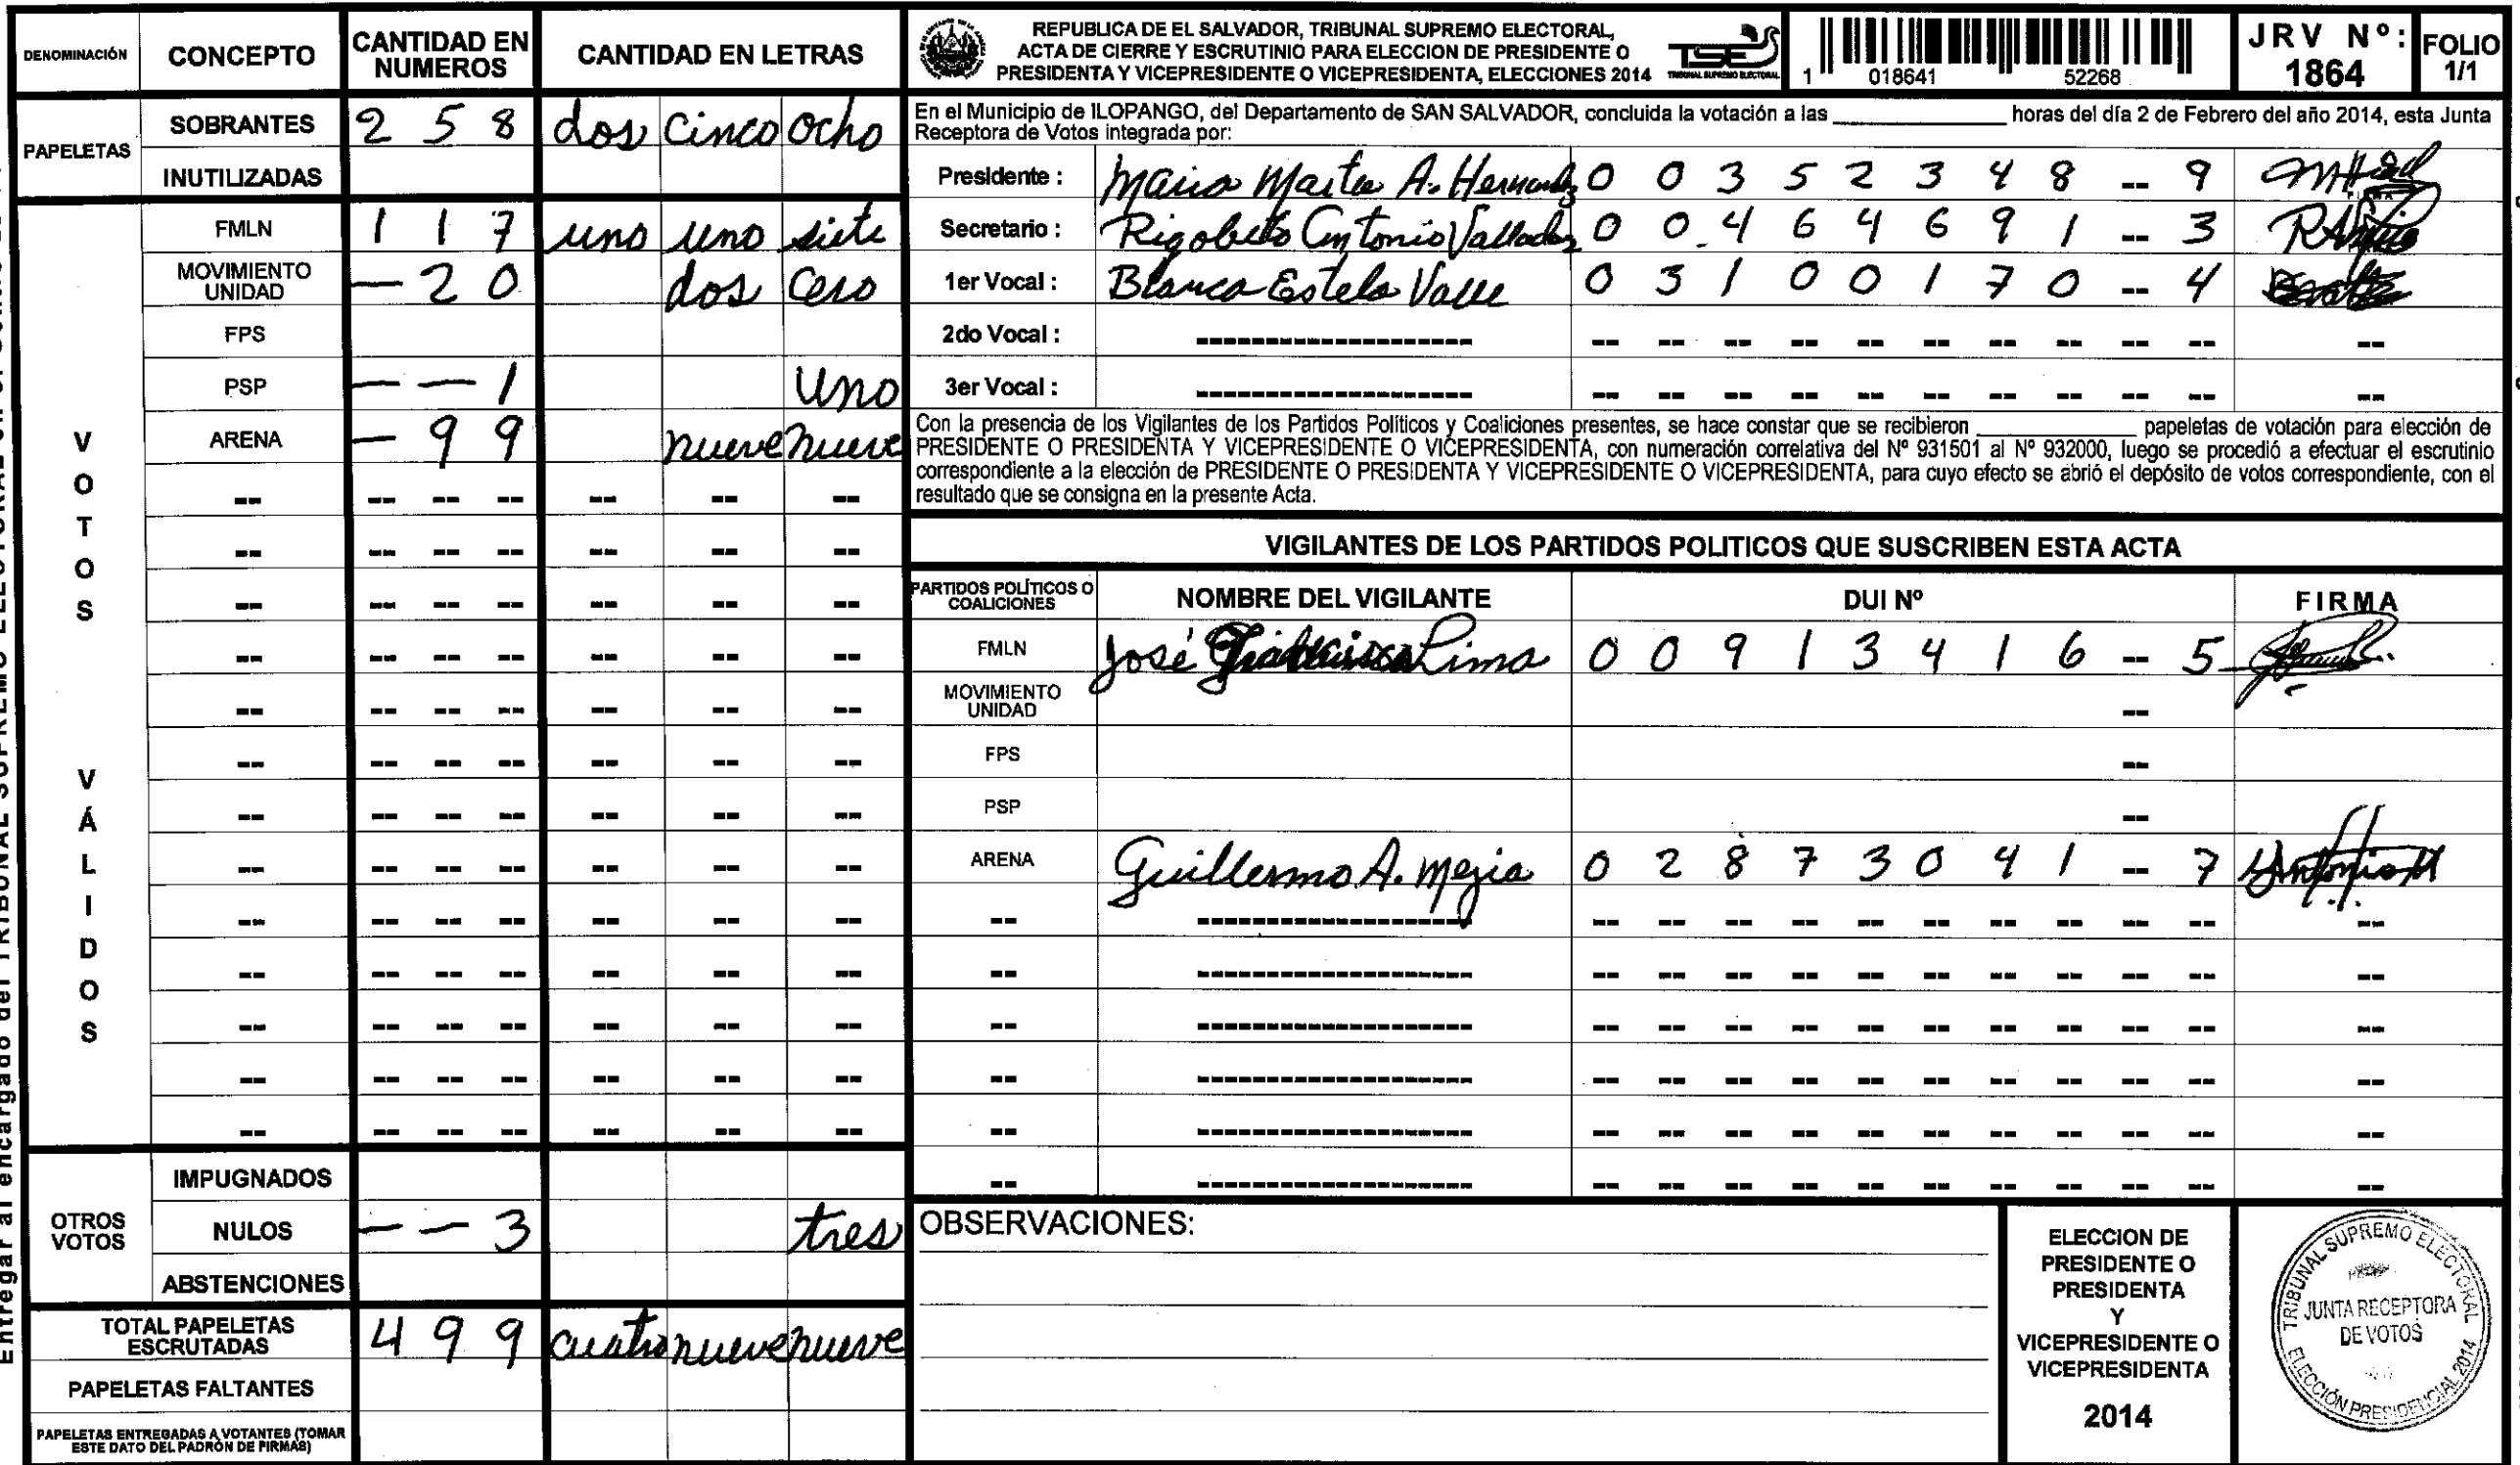 DENOMINACIÓN CONCEPTO CANTIDAD EN NUMEROS CANTIDAD EN LETRAS
PAPELETAS
SOBRANTES 2 5 8 dos cinco ocho
INUTILIZADAS
VOTOS VÁLIDOS
FMLN 1 1 7 uno uno siete
MOVIMIENTO UNIDAD — 2 0 dos cero
FPS
PSP — — 1 uno
ARENA — 9 9 nueve nueve
OTROS VOTOS
IMPUGNADOS
NULOS — — 3 tres
ABSTENCIONES
TOTAL PAPELETAS ESCRUTADAS 4 9 9 cuatro nueve nueve
PAPELETAS FALTANTES
PAPELETAS ENTREGADAS A VOTANTES (TOMAR ESTE DATO DEL PADRÓN DE FIRMAS)
REPUBLICA DE EL SALVADOR, TRIBUNAL SUPREMO ELECTORAL,
ACTA DE CIERRE Y ESCRUTINIO PARA ELECCION DE PRESIDENTE O
PRESIDENTA Y VICEPRESIDENTE O VICEPRESIDENTA, ELECCIONES 2014
TSE
TRIBUNAL SUPREMO ELECTORAL
1 018641 52268
JRV Nº: 1864
FOLIO 1/1
En el Municipio de ILOPANGO, del Departamento de SAN SALVADOR, concluida la votación a las ____________ horas del día 2 de Febrero del año 2014, esta Junta
Receptora de Votos integrada por:
Presidente : Maria Marta A. Hernandez 0 0 3 5 2 3 4 8 -- 9
Secretario : Rigoberto Antonio Valladez 0 0 4 6 4 6 9 1 -- 3
1er Vocal : Blanca Estela Valle 0 3 1 0 0 1 7 0 -- 4
2do Vocal :
3er Vocal :
Con la presencia de los Vigilantes de los Partidos Políticos y Coaliciones presentes, se hace constar que se recibieron ____________ papeletas de votación para elección de
PRESIDENTE O PRESIDENTA Y VICEPRESIDENTE O VICEPRESIDENTA, con numeración correlativa del Nº 931501 al Nº 932000, luego se procedió a efectuar el escrutinio
correspondiente a la elección de PRESIDENTE O PRESIDENTA Y VICEPRESIDENTE O VICEPRESIDENTA, para cuyo efecto se abrió el depósito de votos correspondiente, con el
resultado que se consigna en la presente Acta.
VIGILANTES DE LOS PARTIDOS POLITICOS QUE SUSCRIBEN ESTA ACTA
PARTIDOS POLÍTICOS O COALICIONES NOMBRE DEL VIGILANTE DUI Nº FIRMA
FMLN José Lima 0 0 9 1 3 4 1 6 -- 5
MOVIMIENTO UNIDAD --
FPS --
PSP --
ARENA Guillermo A. Mejia 0 2 8 7 3 0 4 1 -- 7
OBSERVACIONES:
ELECCION DE
PRESIDENTE O
PRESIDENTA
Y
VICEPRESIDENTE O
VICEPRESIDENTA
2014
TRIBUNAL SUPREMO ELECTORAL
JUNTA RECEPTORA
DE VOTOS
ELECCIÓN PRESIDENCIAL 2014
Entregar al encargado del TRIBUNAL SUPREMO ELECTORAL